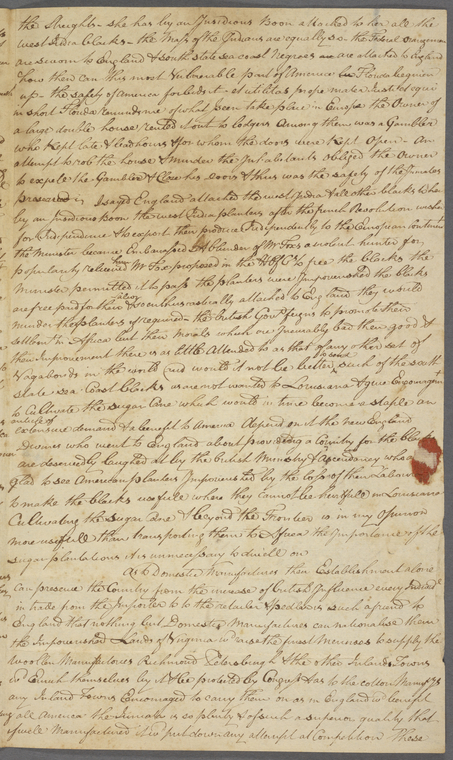 the Streights - she has by an Insidious Boon attached to her all the
West India blacks - the Mass of the Indians are equally so - the
are sworn to England & South State sea coast Negroes are attached to England
how then can this most Vulnerable part of America
up - the safety of America forbids it -
in short Florida of what been take place in Europe the Owner of
a large double house rented it out to lodgers Among them was a Gambler
who kept late & bad hours & for whom the doors were kept Open - an
attempt to rob the house & murder the Inhabitants obliged the Owner
to expele the Gambler & Close his doors & thus was the safety of the Inmates
preserved - I say England attached the West India & all other blacks to her
by an insidious Boon the West India planters after the french Revolution
for Independence & to export their produce Independently to the European
the Minister became Embarrassed A blunder of Mr Foxs a violent hunter for
popularity relieved him Mr Fox proposed in the H of C to free the blacks the
Minister permitted it to pass the planters were Impoverished the blacks
are free paid for their labor & are enthusiastically attached to England they would
murder the planters if required - the british Govt feigns to promote their
settlemt in Africa but their morals which are Incurably bad their good &
their Improvement there is as little Attended to as that of any other set of
Vagabonds in the world would it not be better to send such of the south
state sea Coast blacks as are not wanted to Louisiana & give Encouragemt
to Cultivate the sugar Cane which would in time become a staple an
article of extensive demand & a benefit to America depend on it the new England
divines who went to England about providing a Country for the blacks
are deservedly laughed at by the british Ministry & Ascendancy who are
glad to see American planters Impoverished by the loss of their Labour
to make the blacks usefull where they cannot be hurtfull in Louisiana
Cultivating the sugar Cane & beyond the Frontier is in my Opinion
more usefull than transporting them to Africa the Importance of the
sugar plantations it is unnecessary to dwell on
As to Domestic Manufactures their Establishment alone
can preserve the Country from the increase of british Influence every Individl
in trade from the Importer to the retailer & pedlar is such a friend to
England that nothing but Domestic Manufactures can nationalise them
the Impoverished Lands of Virginia to raise the finest Merinoes to supply the
woollen Manufactories Richmond Petersburgh & the other Inland Towns
to Enrich themselves by it & be protected by Congress as to the cotton Manufrs
any Inland Towns Encouraged to carry them on as in England will benefit
all America the is so plenty & of such a superior quality that
if well Manufactured it will put down any attempt at Competition These